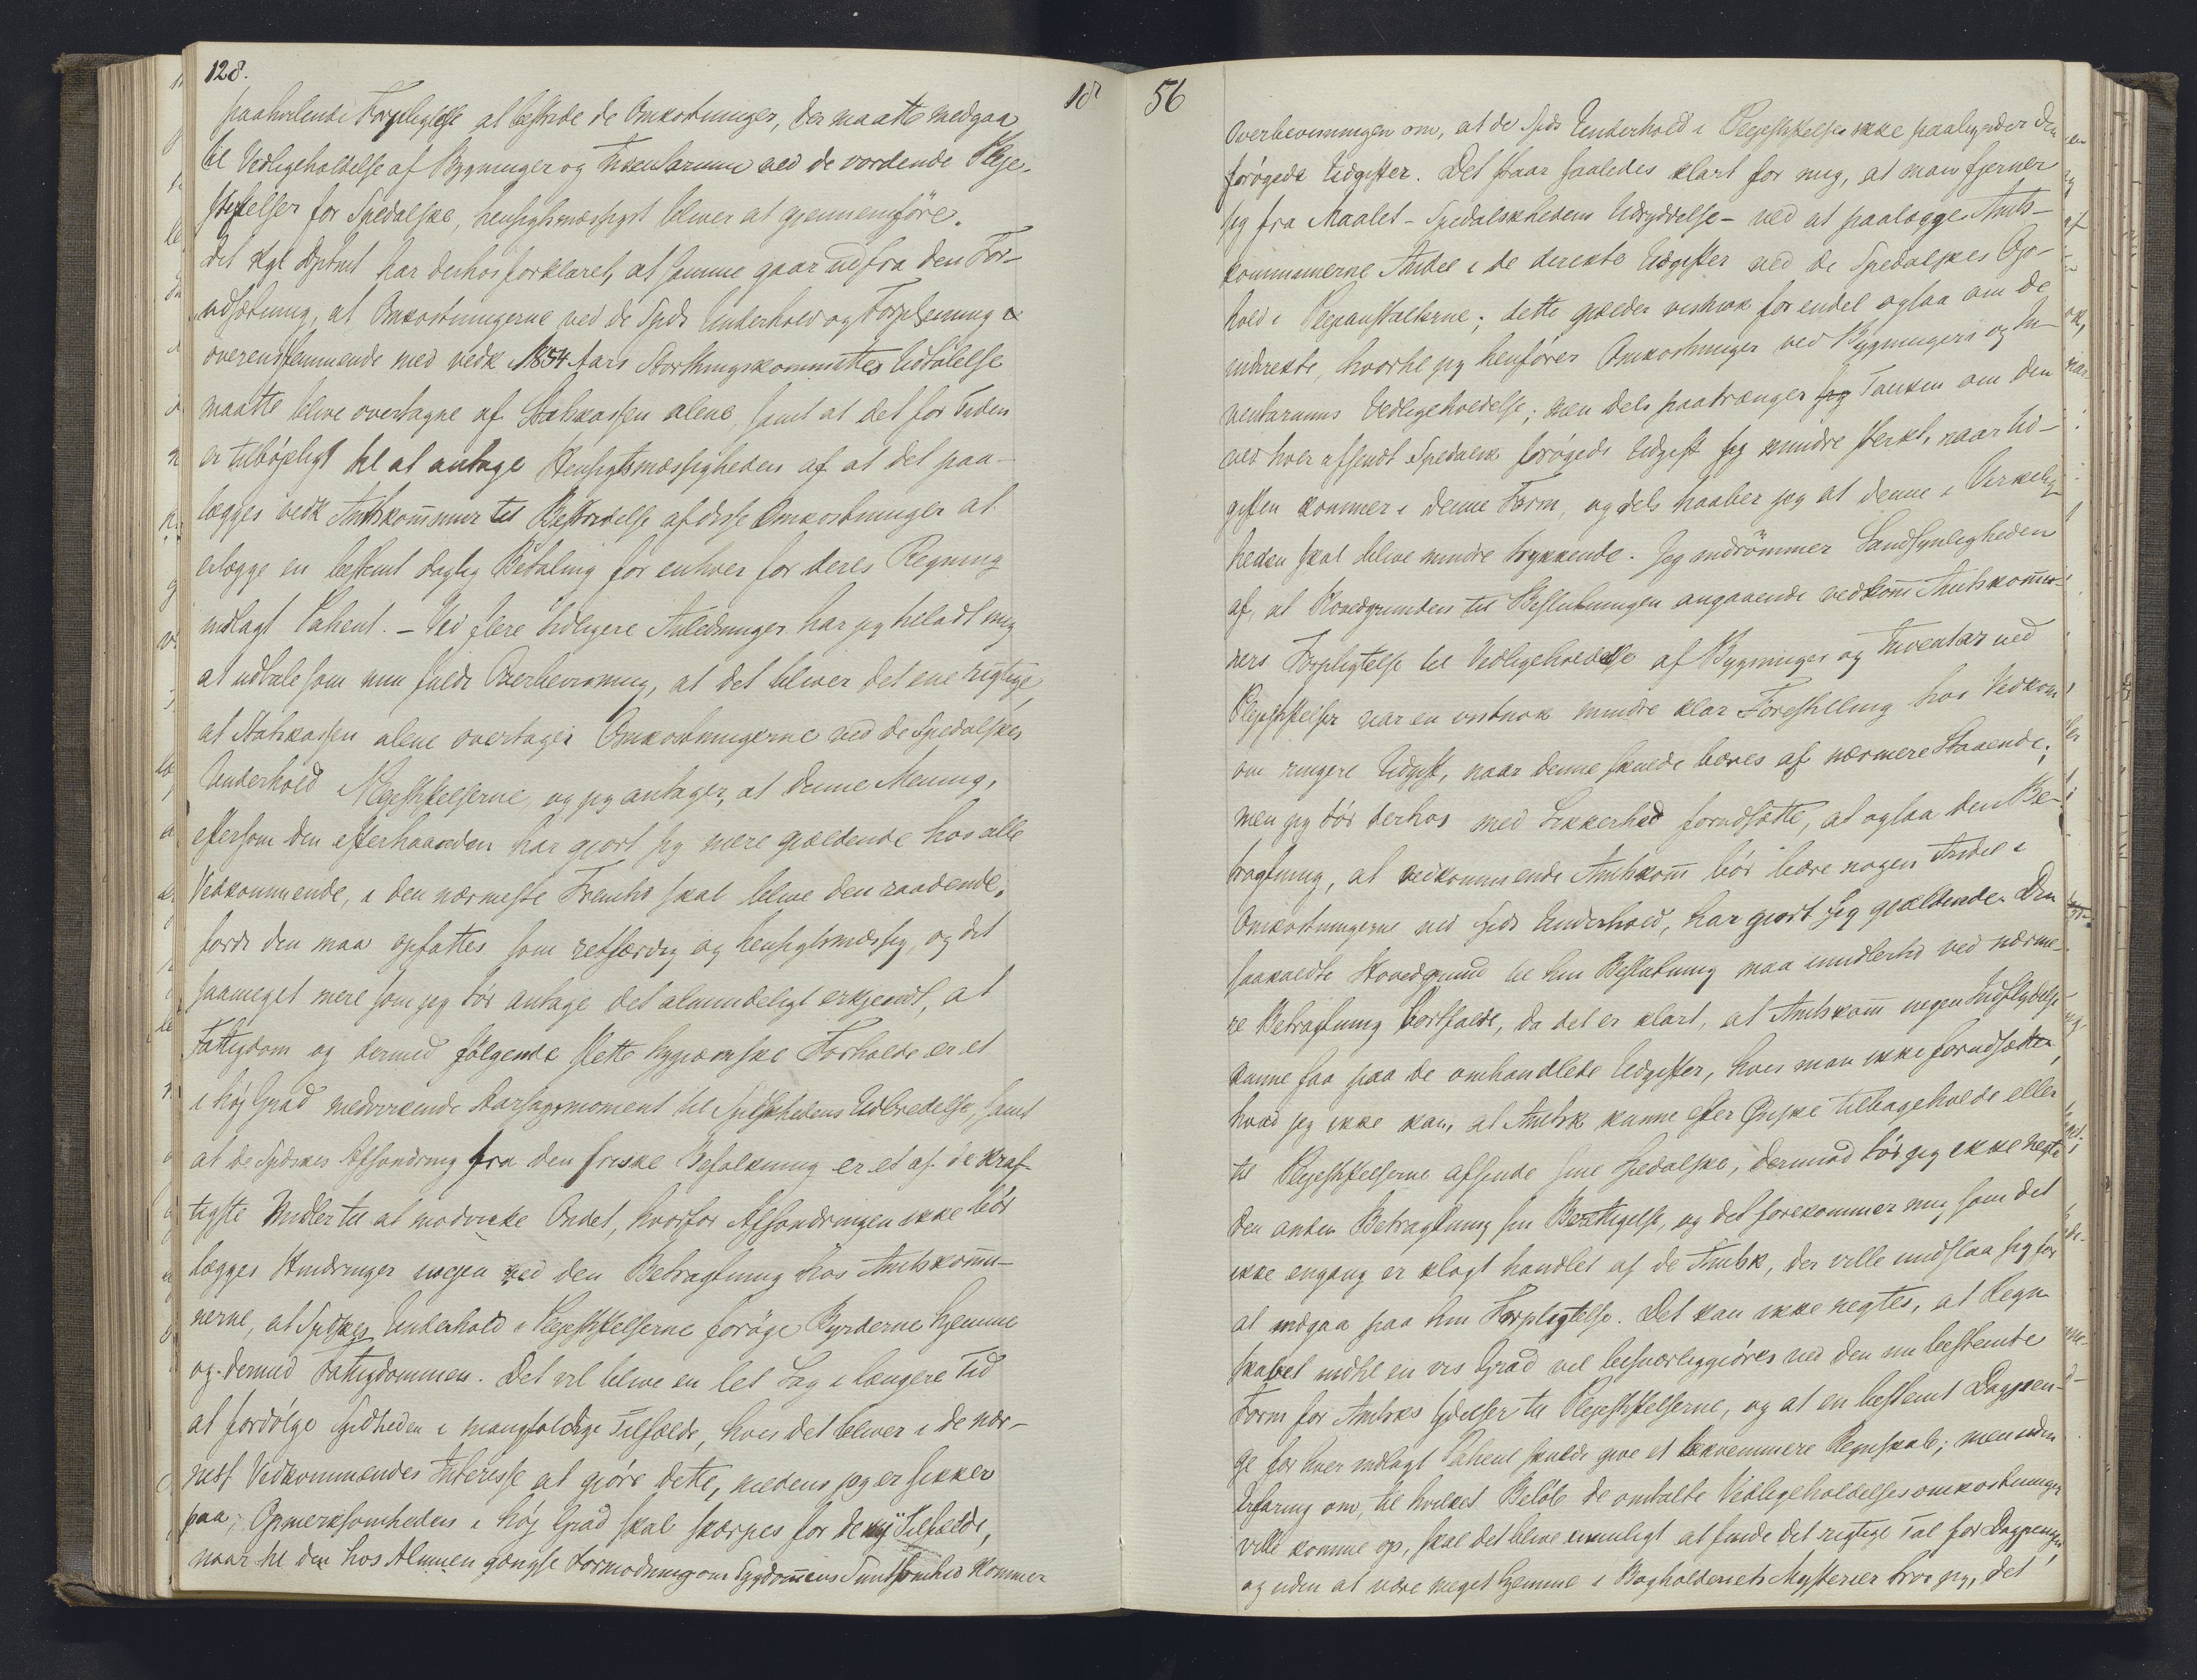 128.
18
paahvilende Forpligtelse at bestride de Omkostninger, der maatte medgaa
til Vedligeholdelse af Bygninger og Inventarium ved de vordende Pleje-
stiftelser for Spedalske, hensigtsmæssigst bliver at gjennemføre.
Det Kgl Dptmt har derhos forklaret, at samme gaar ud fra den For-
udsætning, at Omkostningerne ved de Spds Underhold og Forplejning i
overensstemmende med vedk 1854 Aars Storthingskommittes Udtalelse
maatte blive overtagne af Statskassen alene, samt at det for Tiden
er tilbøjeligt til at antage Hensigtsmæssigheden af at det paa-
lægges vedk Amtskommuner til Bestridelse af disse Omkostninger at
erlægge en bestemt daglig Betaling for enhver for deres Regning
indlagt Patient. – Ved flere tidligere Anledninger har jeg tilladt mig
at udtale som min fulde Overbevisning, at det bliver det ene rigtige,
at Statskassen alene overtager Omkostningerne ved de Spedalskes
Underhold i Plejestiftelserne, og jeg antager, at denne Mening,
eftersom den efterhaanden har gjort sig mere gjældende hos alle
Vedkommende, i den nærmeste Fremtid skal blive den raadende,
fordi den maa opfattes som retfærdig og hensigtsmæssig, og det
saameget mere som jeg tør antage det almindeligt erkjendt, at
Fattigdom og dermed følgende slette hygieniske Forholde er et
i høj Grad medvirkende Aarsagsmoment til Spdskhedens Udbredelse, samt
at de Spdskes Afsondring fra den friske Befolkning er et af de kraf-
tigste Midler til at modvirke Ondet, hvorfor Afsondringen ikke bør
lægges Hindringer ivejen ved den Betragtning hos Amtskommu-
nerne, at Spdskes Underhold i Plejestiftelserne forøge Byrderne hjemme
og dermed Fattigdommen. Det vil blive en let Sag i længere Tid
at fordølge Spdheden i mangfoldige Tilfælde, hvis det bliver i de nær-
mest Vedkommendes Interesse at gjøre dette, medens jeg er sikker
paa, Opmerksomheden i høj Grad skal skærpes for de ny Tilfælde,
naar til den hos Almuen gængse Formodning om Sygdommens Smitsomhed kommer
56
Overbevisningen om, at de Spds Underhold i Plejestiftelser ikke paabyrder den
forøgede Udgifter. Det staar saaledes klart for mig, at man fjerner
sig fra Maalet – Spedalskhedens Udryddelse – ved at paalægge Amts-
kommunerne Andel i de direkte Udgifter ved de Spedalskes Op-
hold i Plejeanstalterne; dette gjælder vistnok for endel ogsaa om de
indirekte, hvortil jeg henfører Omkostninger ved Bygningers og In-
ventariums Vedligeholdelse; men dels paatrænger sig Tanken om den
ved hver afsendt Spedalsk forøgede Udgift sig mindre sterkt, naar Ud-
giften kommer i denne Form, og dels haaber jeg at denne i Virkelig-
heden skal blive mindre trykkende. Jeg indrømmer Sandsynligheden
af, at Hovedgrunden til Beslutningen angaaende vedkom Amtskommu-
ners Forpligtelse til Vedligeholdelse af Bygninger og Inventar ved
Plejestiftelser var en vistnok mindre klar Forestilling hos Vedkom
om ringere Udgift, naar denne skulde bæres af nærmere Staaende;
men jeg tør derhos med Sikkerhed forudsætte, at ogsaa den Be-
tragtning, at vedkommende Amtskom bør bære nogen Andel i
Omkostningerne ved Spds Underhold, har gjort sig gjældende. Den
saakaldte Hovedgrund til hin Beslutning maa imidlertid ved nærme-
re Betragtning bortfalde, da det er klart, at Amtskom ingen Indflydelse
kunne faa paa de omhandlede Udgifter, hvis man ikke forudsætter,
hvad jeg ikke kan, at Amtsk kunne efter Ønske tilbageholde eller
til Plejestiftelserne afsende sine Spedalske, dermed tør jeg ikke negte
den anden Betragtning sin Berettigelse, og det forekommer mig som det
ikke engang er klogt handlet af de Amtsk, der ville undslaa sig for
at indgaa paa hin Forpligtelse. Det kan ikke negtes, at Regn-
skabet indtil en vis Grad vil besværliggjøres ved den nu bestemte
Form for Amtsks Ydelser til Plejestiftelserne, og at en bestemt Dagpen-
ge for hver indlagt Patient skulde give et bekvemmere Regnskab; men uden
Erfaring om, til hvilket Beløb de omtalte Vedligeholdelsesomkostninger
ville komme op, skal det blive umuligt at finde det rigtige Tal for Dagpenge,
og uden at være meget hjemme i Bogholderiets Mysterier tror jeg, det